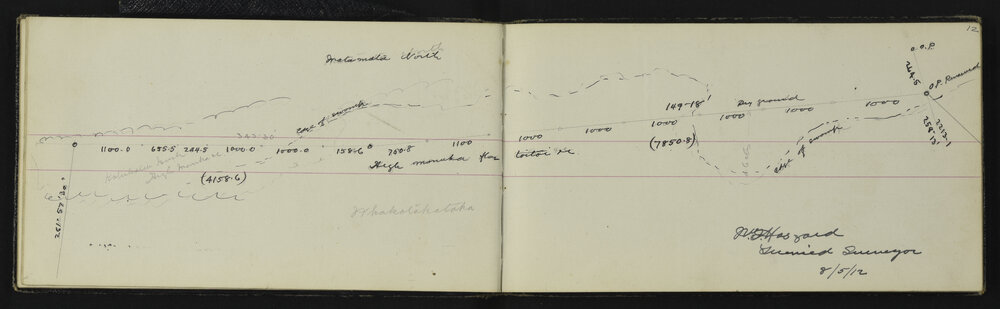 Matamata North
343.30
edge of swamp
0 1100.0 655.5 244.5 1000.0 1000.0 158.6 750.8 1100
High manuka
High manuka flax toitoi &c
(4158.6)
251° 57' 30"
Whakotakataka
12
O.P.
264.5
O.P. Renewed
149-18'
Dry ground
1000 1000 1000 1000 1000
(7850.8)
edge of swamp
2213.1
258° 13'
Haszard
Licensed Surveyor
8/5/12